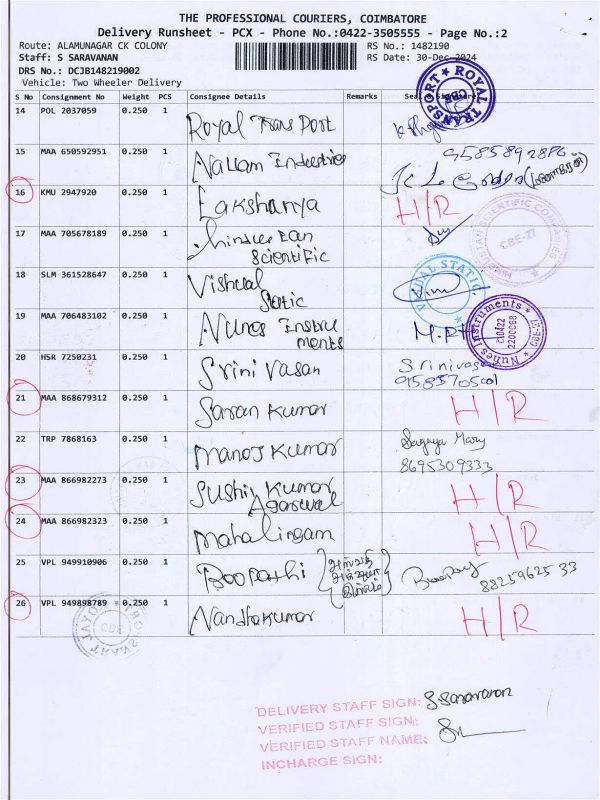 THE PROFESSIONAL COURIERS, COIMBATORE
Delivery Runsheet - PCX - Phone No.:0422-3505555 - Page No.:2
Route: ALAMUNAGAR CK COLONY RS No.: 1482190
Staff: S SARAVANAN RS Date: 30-Dec-2024
DRS No.: DCJB148219002
Vehicle: Two Wheeler Delivery
S No Consignment No Weight PCS Consignee Details Remarks
14 POL 2037059 0.250 1 Royal Trans Port
ROYAL TRANSPORT
15 MAA 650592951 0.250 1 Nallam Industries
16 KMU 2947920 0.250 1 Lakshanya H/R
17 MAA 705678189 0.250 1 Scientific
CBE-27
18 SLM 361528647 0.250 1 Vishual
Static
19 MAA 706483102 0.250 1 Nunes Instru
ments
Nunes Instruments
20 HSR 7250231 0.250 1 Srini Vasan Srinivasa
21 MAA 868679312 0.250 1 Saran Kumar H/R
22 TRP 7868163 0.250 1 Manoj Kumar Sagaya Mary
8695309333
23 MAA 866982273 0.250 1 Sushil Kumar H/R
Agarwal
24 MAA 866982323 0.250 1 Mahalingam H/R
25 VPL 949910906 0.250 1 Boopathi Boopathy
8825962533
26 VPL 949898789 0.250 1 Nandhakumar H/R
DELIVERY STAFF SIGN: S. Saravanan
VERIFIED STAFF SIGN:
VERIFIED STAFF NAME:
INCHARGE SIGN: